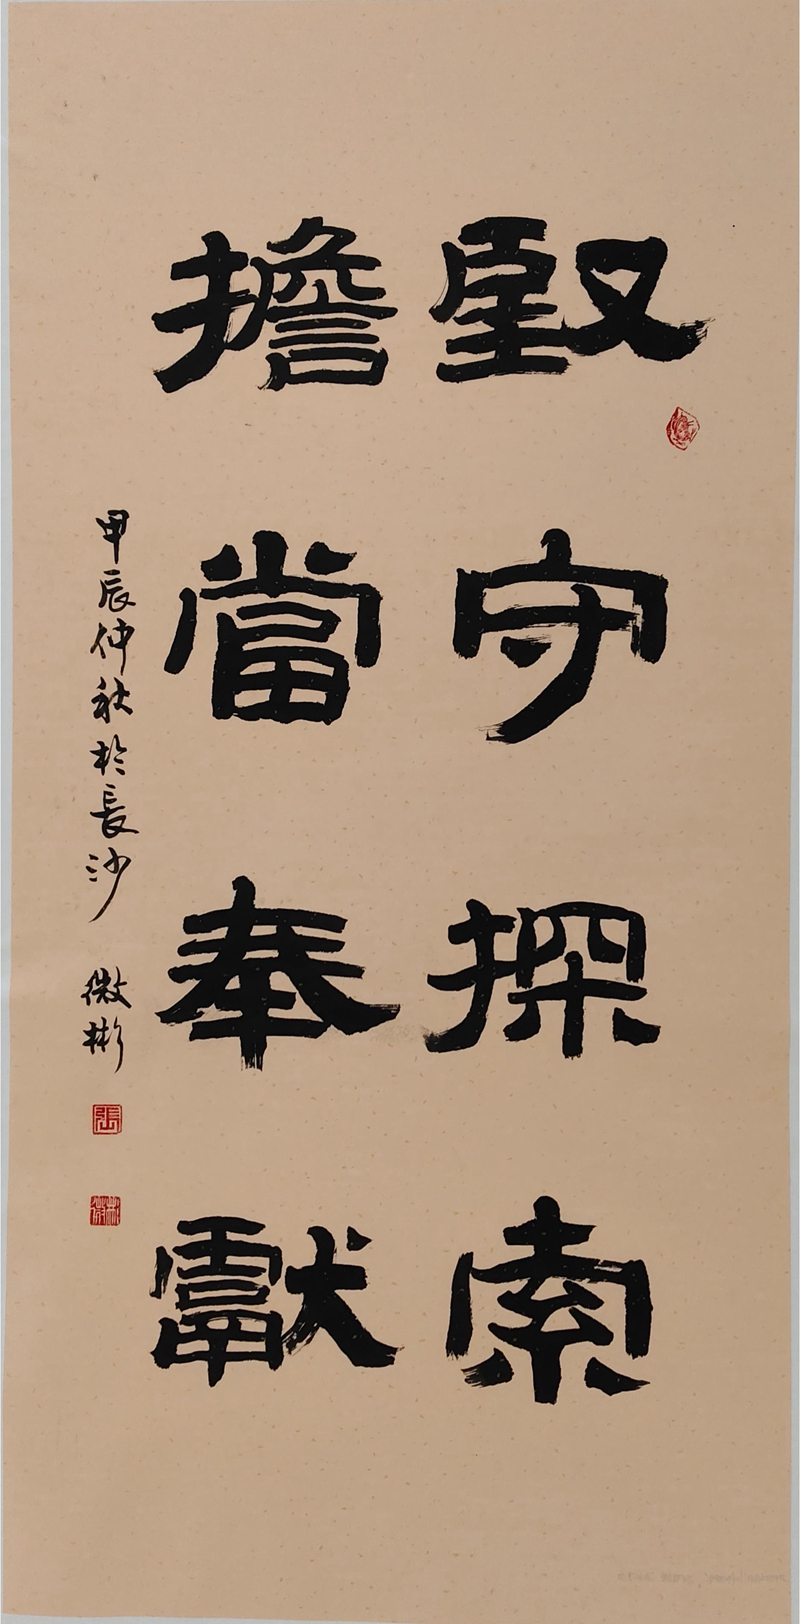 堅守探索
擔當奉獻
甲辰仲秋於長沙 微彬
張
微彬